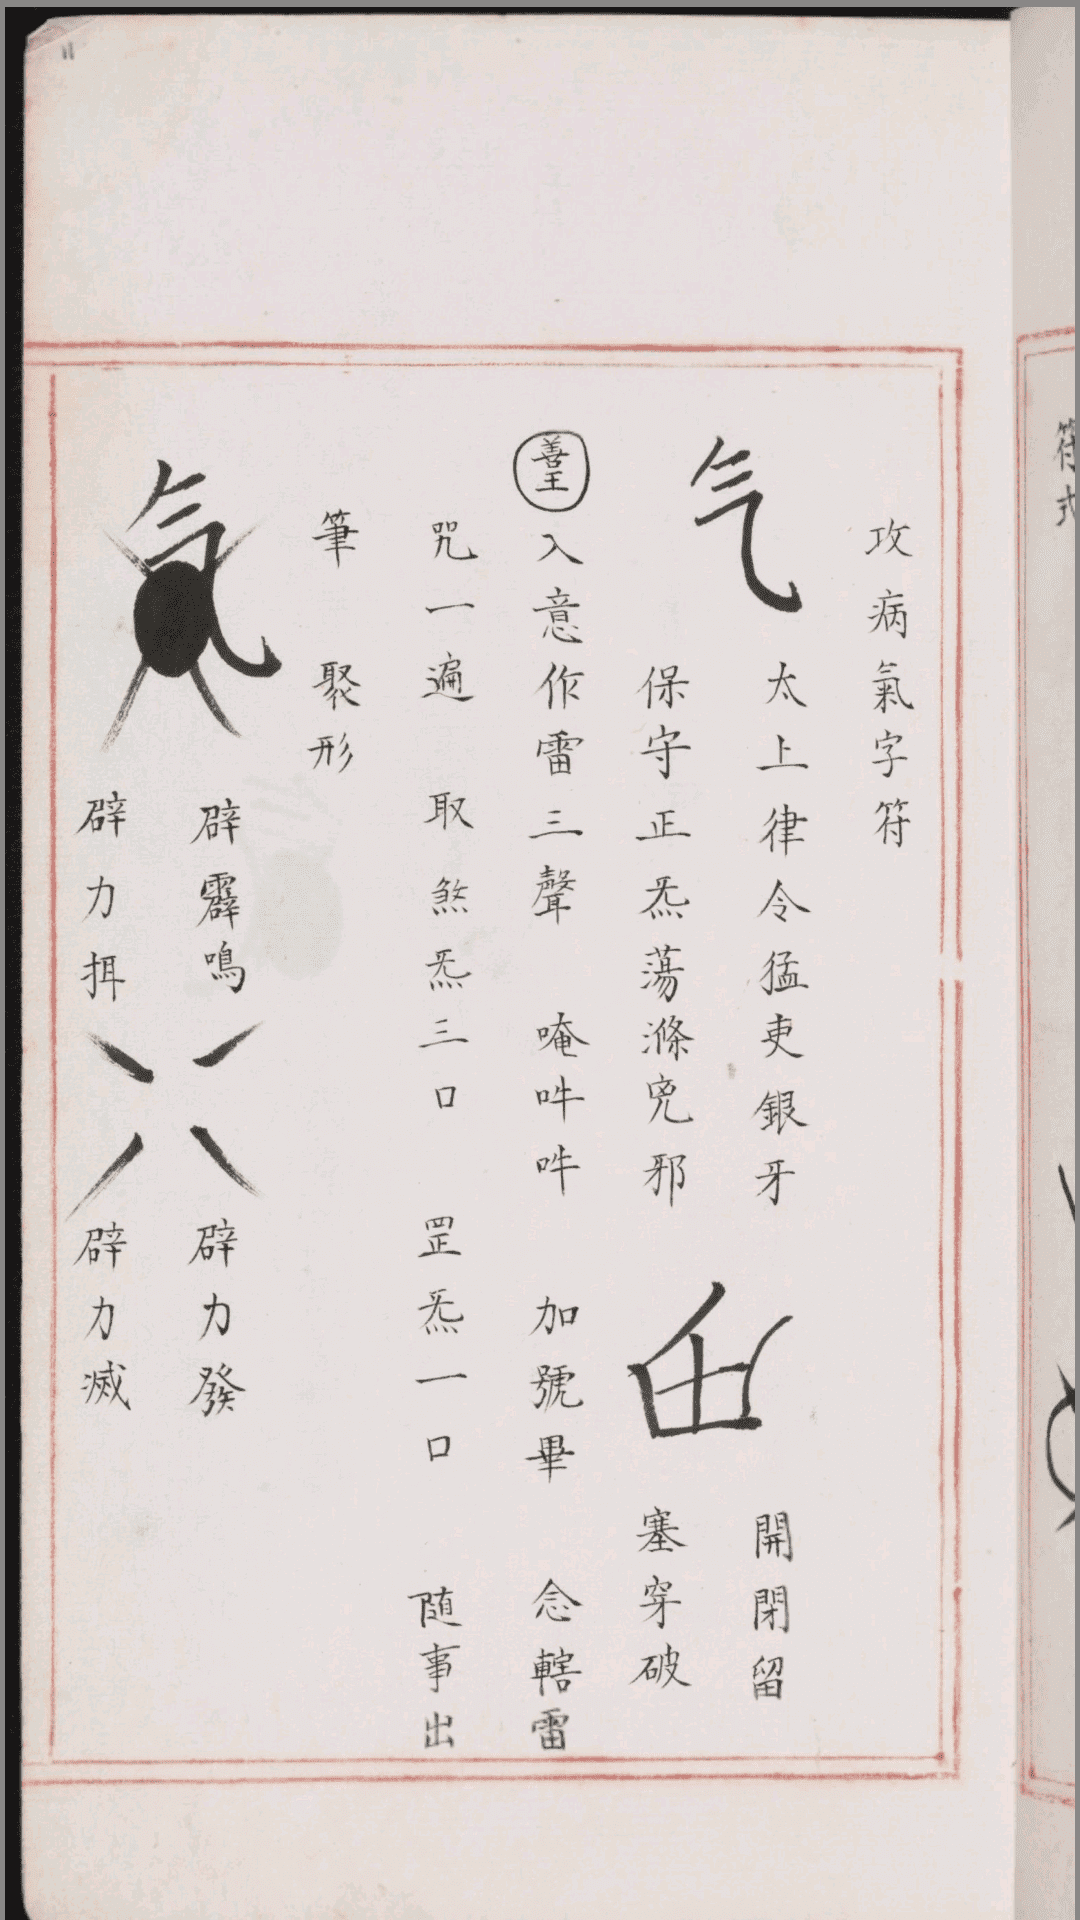 攻病氣字符
气
太上律令猛吏銀牙
保守正炁蕩滌兇邪
開閉留
塞穿破
善王
入意作雷三聲 唵吽吽 加號畢 念轄雷
咒一遍 取煞炁三口 罡炁一口 随事出
筆 聚形
辟霹鳴 辟力發
氣
辟力挕 辟力滅
符式